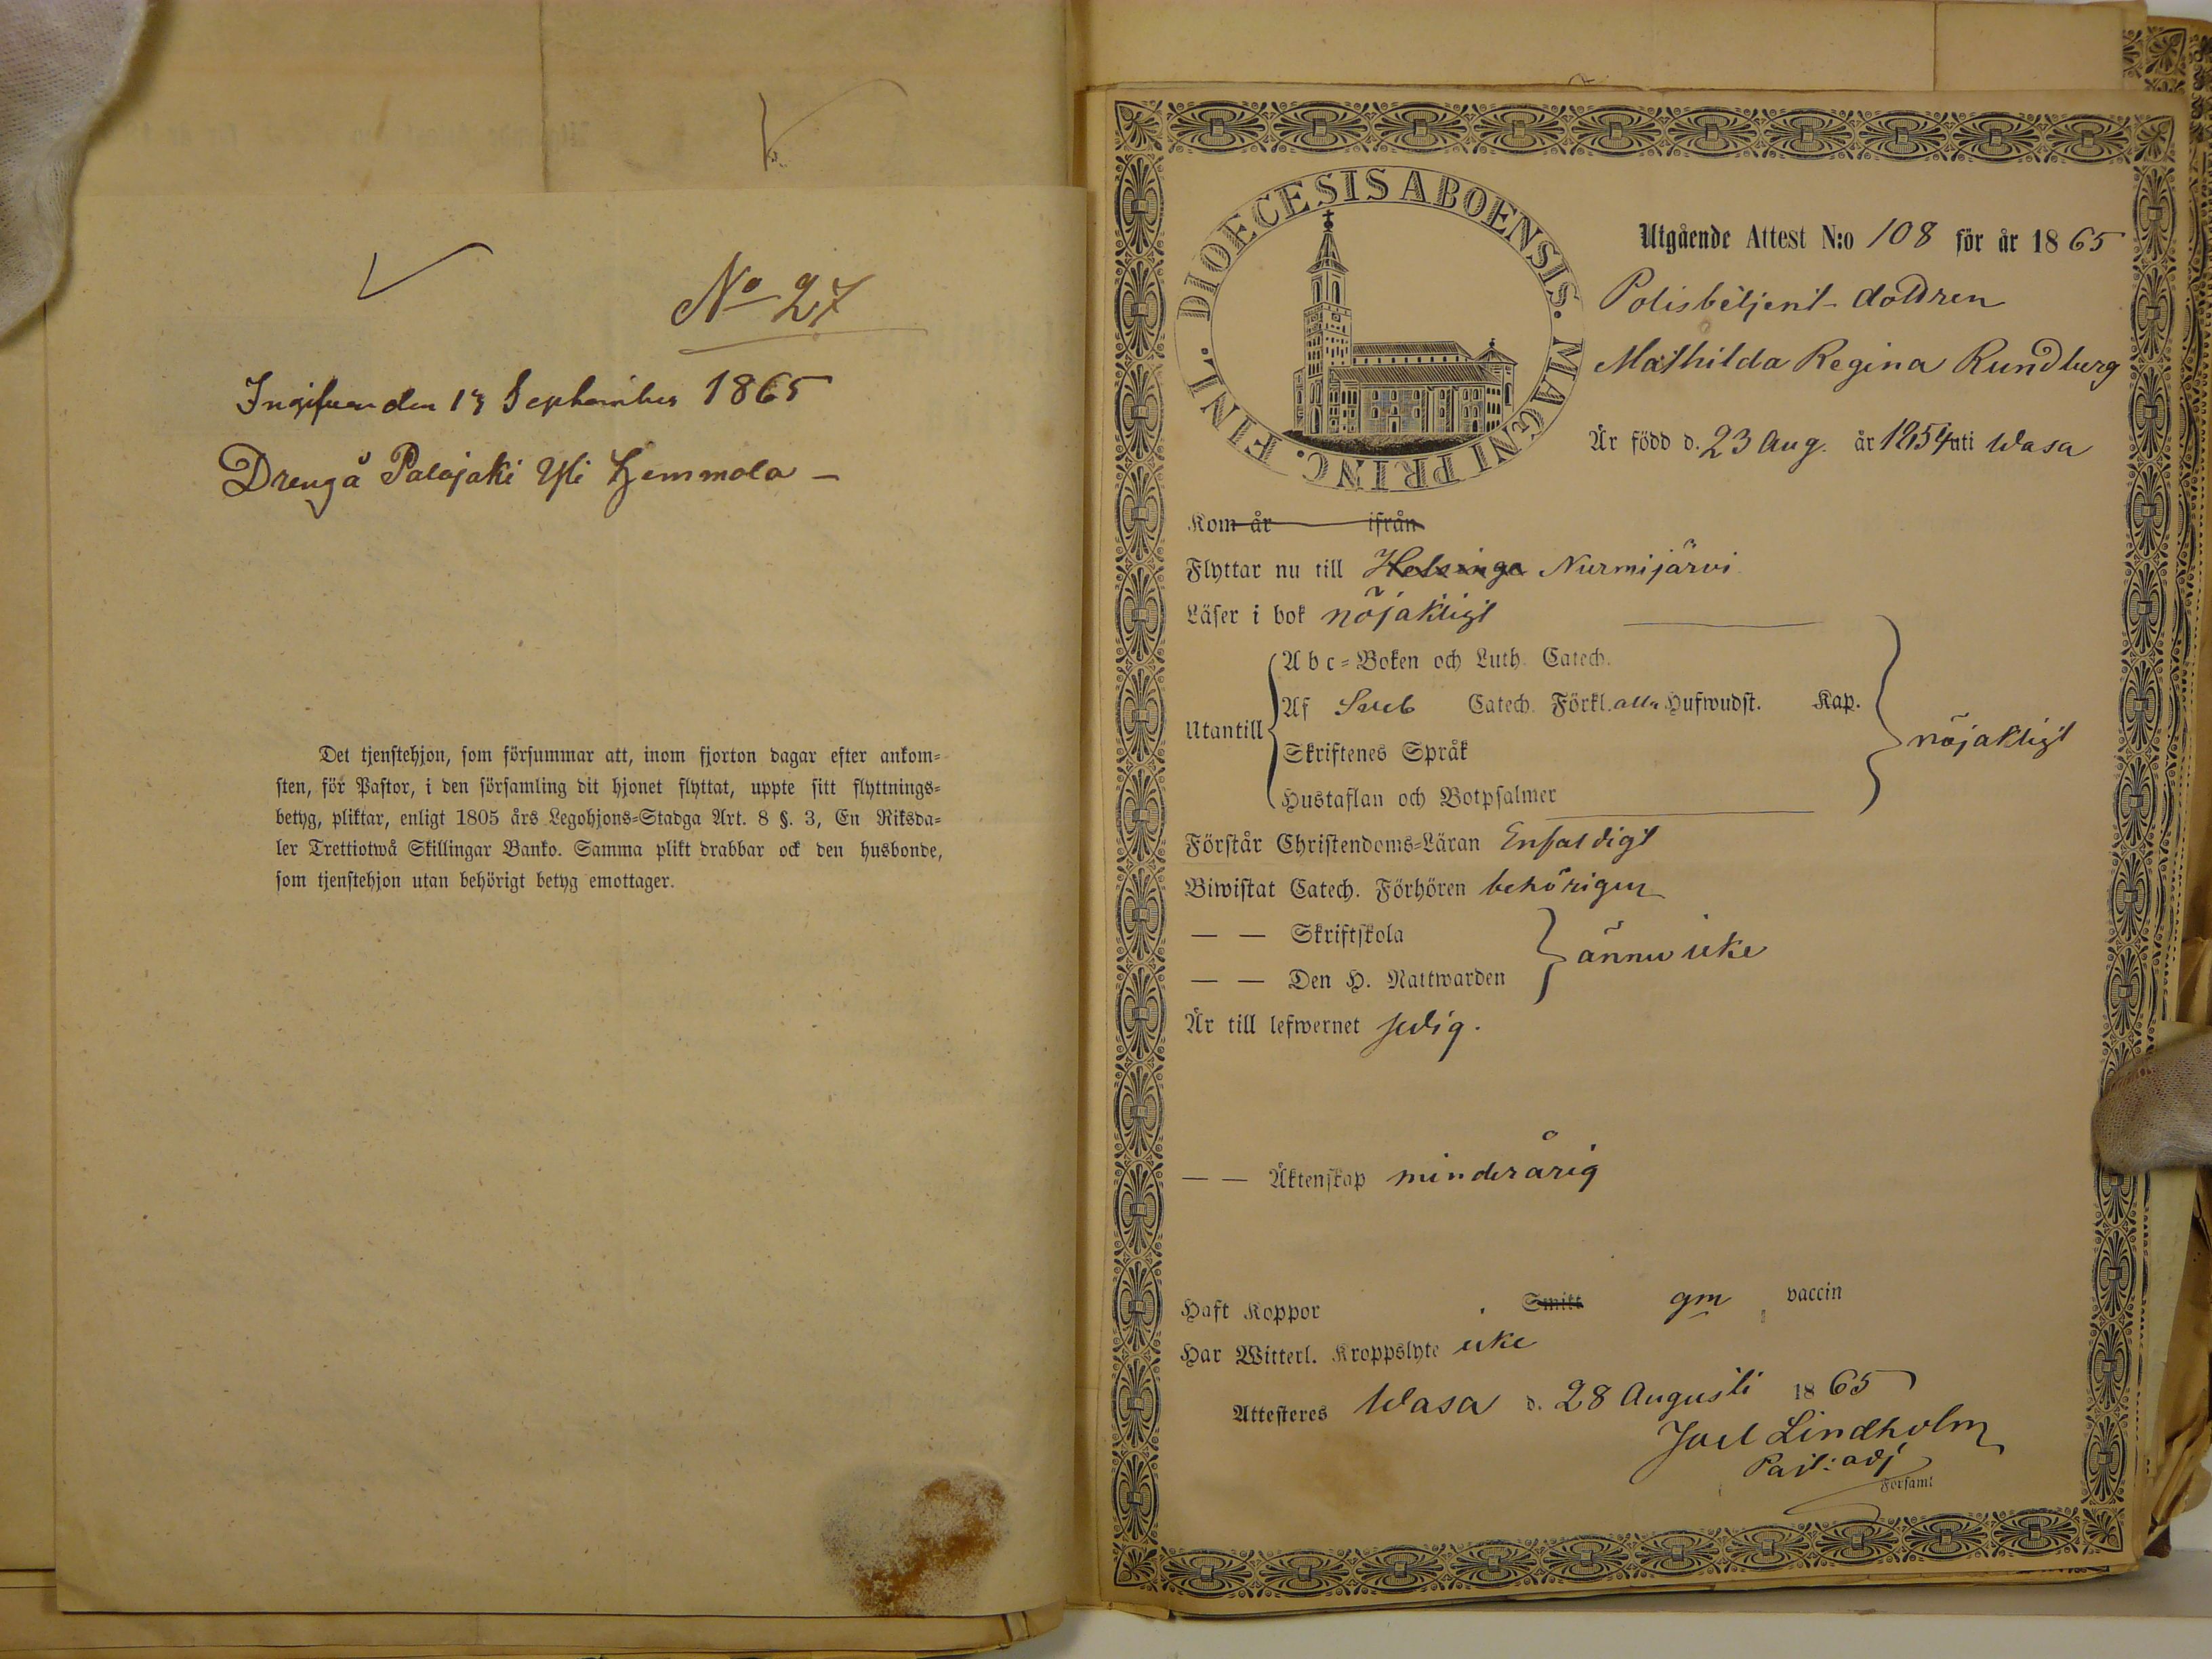 No 27
Ingifven den 13 September 1865
Dreng å Palojoki Yli Hemmola -
Det tjenstehjon, som försummar att, inom fjorton dagar efter ankom-
sten, för Pastor, i den församling dit hjonet flyttat, uppte sitt flyttnings-
betyg, pliktar, enligt 1805 års Legohjons-Stadga Art. 8 §. 3, En Riksda-
ler Trettiotwå Skillingar Banko. Samma plikt drabbar ock den husbonde,
som tjenstehjon utan behörigt betyg emottager.
DIOECESIS ABOENSIS. MAGNI PRINC. FINL.
Utgående Attest N:o 108 för år 1865
Polisbetjent-dottren
Mathilda Regina Rundberg
Är född d. 23 Aug. år 1854 uti Wasa
Kom år ifrån
Flyttar nu till Helsinge Nurmijärvi
Läser i bok nöjaktigt
Abc-Boken och Luth. Catech.
Af Sveb Catech. Förkl. alla Hufwudst. Kap.
Utantill nöjaktigt
Skriftenes Språk
Hustaflan och Botpsalmer
Förstår Christendoms-Läran Enfaldigt
Biwistat Catech. Förhören behörigen
— — Skriftskola
ännu icke
— — Den H. Nattwarden
Är till lefwernet sedig.
— — Äktenskap minderårig
Haft Koppor Smitt gm vaccin
Har Witterl. Kroppslyte icke
Attesteres Wasa d. 28 Augusti 1865
Joel Lindholm
Past: adj
Församl